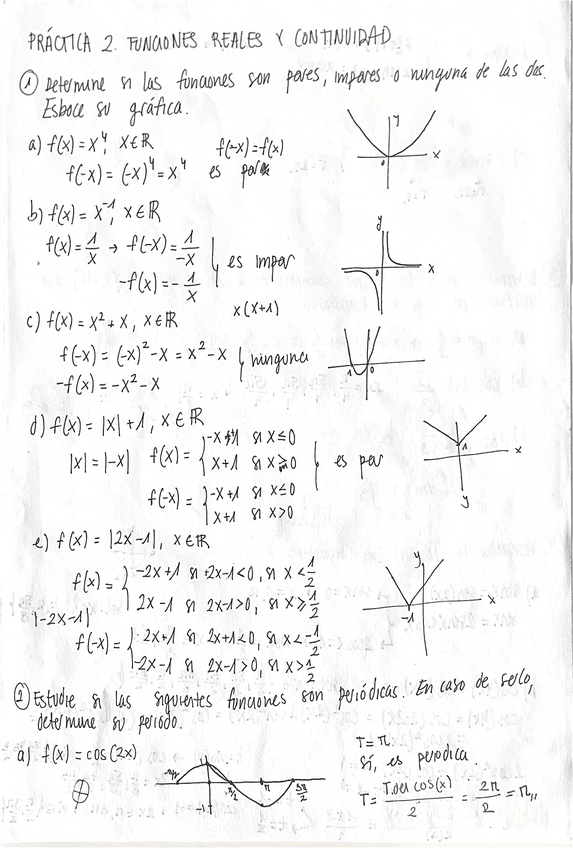 PRÁCTICA 2. FUNCIONES REALES Y CONTINUIDAD
① Determine si las funciones son pares, impares o ninguna de las dos.
Esboce su gráfica.
a) f(x) = x⁴, x∈ℝ f(-x)=f(x)
f(-x) = (-x)⁴ = x⁴ es par
y
x
b) f(x) = x⁻¹, x∈ℝ
f(x) = 1/x → f(-x) = 1/-x es impar
-f(x) = - 1/x
y
0
x
x(x+1)
c) f(x) = x² + x, x∈ℝ
f(-x) = (-x)² - x = x² - x ninguna
-f(x) = -x² - x
1 0
d) f(x) = |x| + 1, x∈ℝ
|x| = |-x| f(x) = { -x+1 si x≤0
x+1 si x≥0 es par
f(-x) = { -x+1 si x≤0
x+1 si x>0
1
x
y
e) f(x) = |2x-1|, x∈ℝ
f(x) = { -2x+1 si 2x-1<0, si x<1/2
2x-1 si 2x-1>0, si x≥1/2
|-2x-1|
f(-x) = { 2x+1 si 2x+1<0, si x<-1/2
-2x-1 si 2x-1>0, si x>1/2
y
x
-1
② Estudie si las siguientes funciones son periódicas. En caso de serlo,
determine su periodo.
a) f(x) = cos(2x)
π/2 π 3π/2
-1
T = π
Sí, es periodica
T = T del cos(x)/2 = 2π/2 = π,,